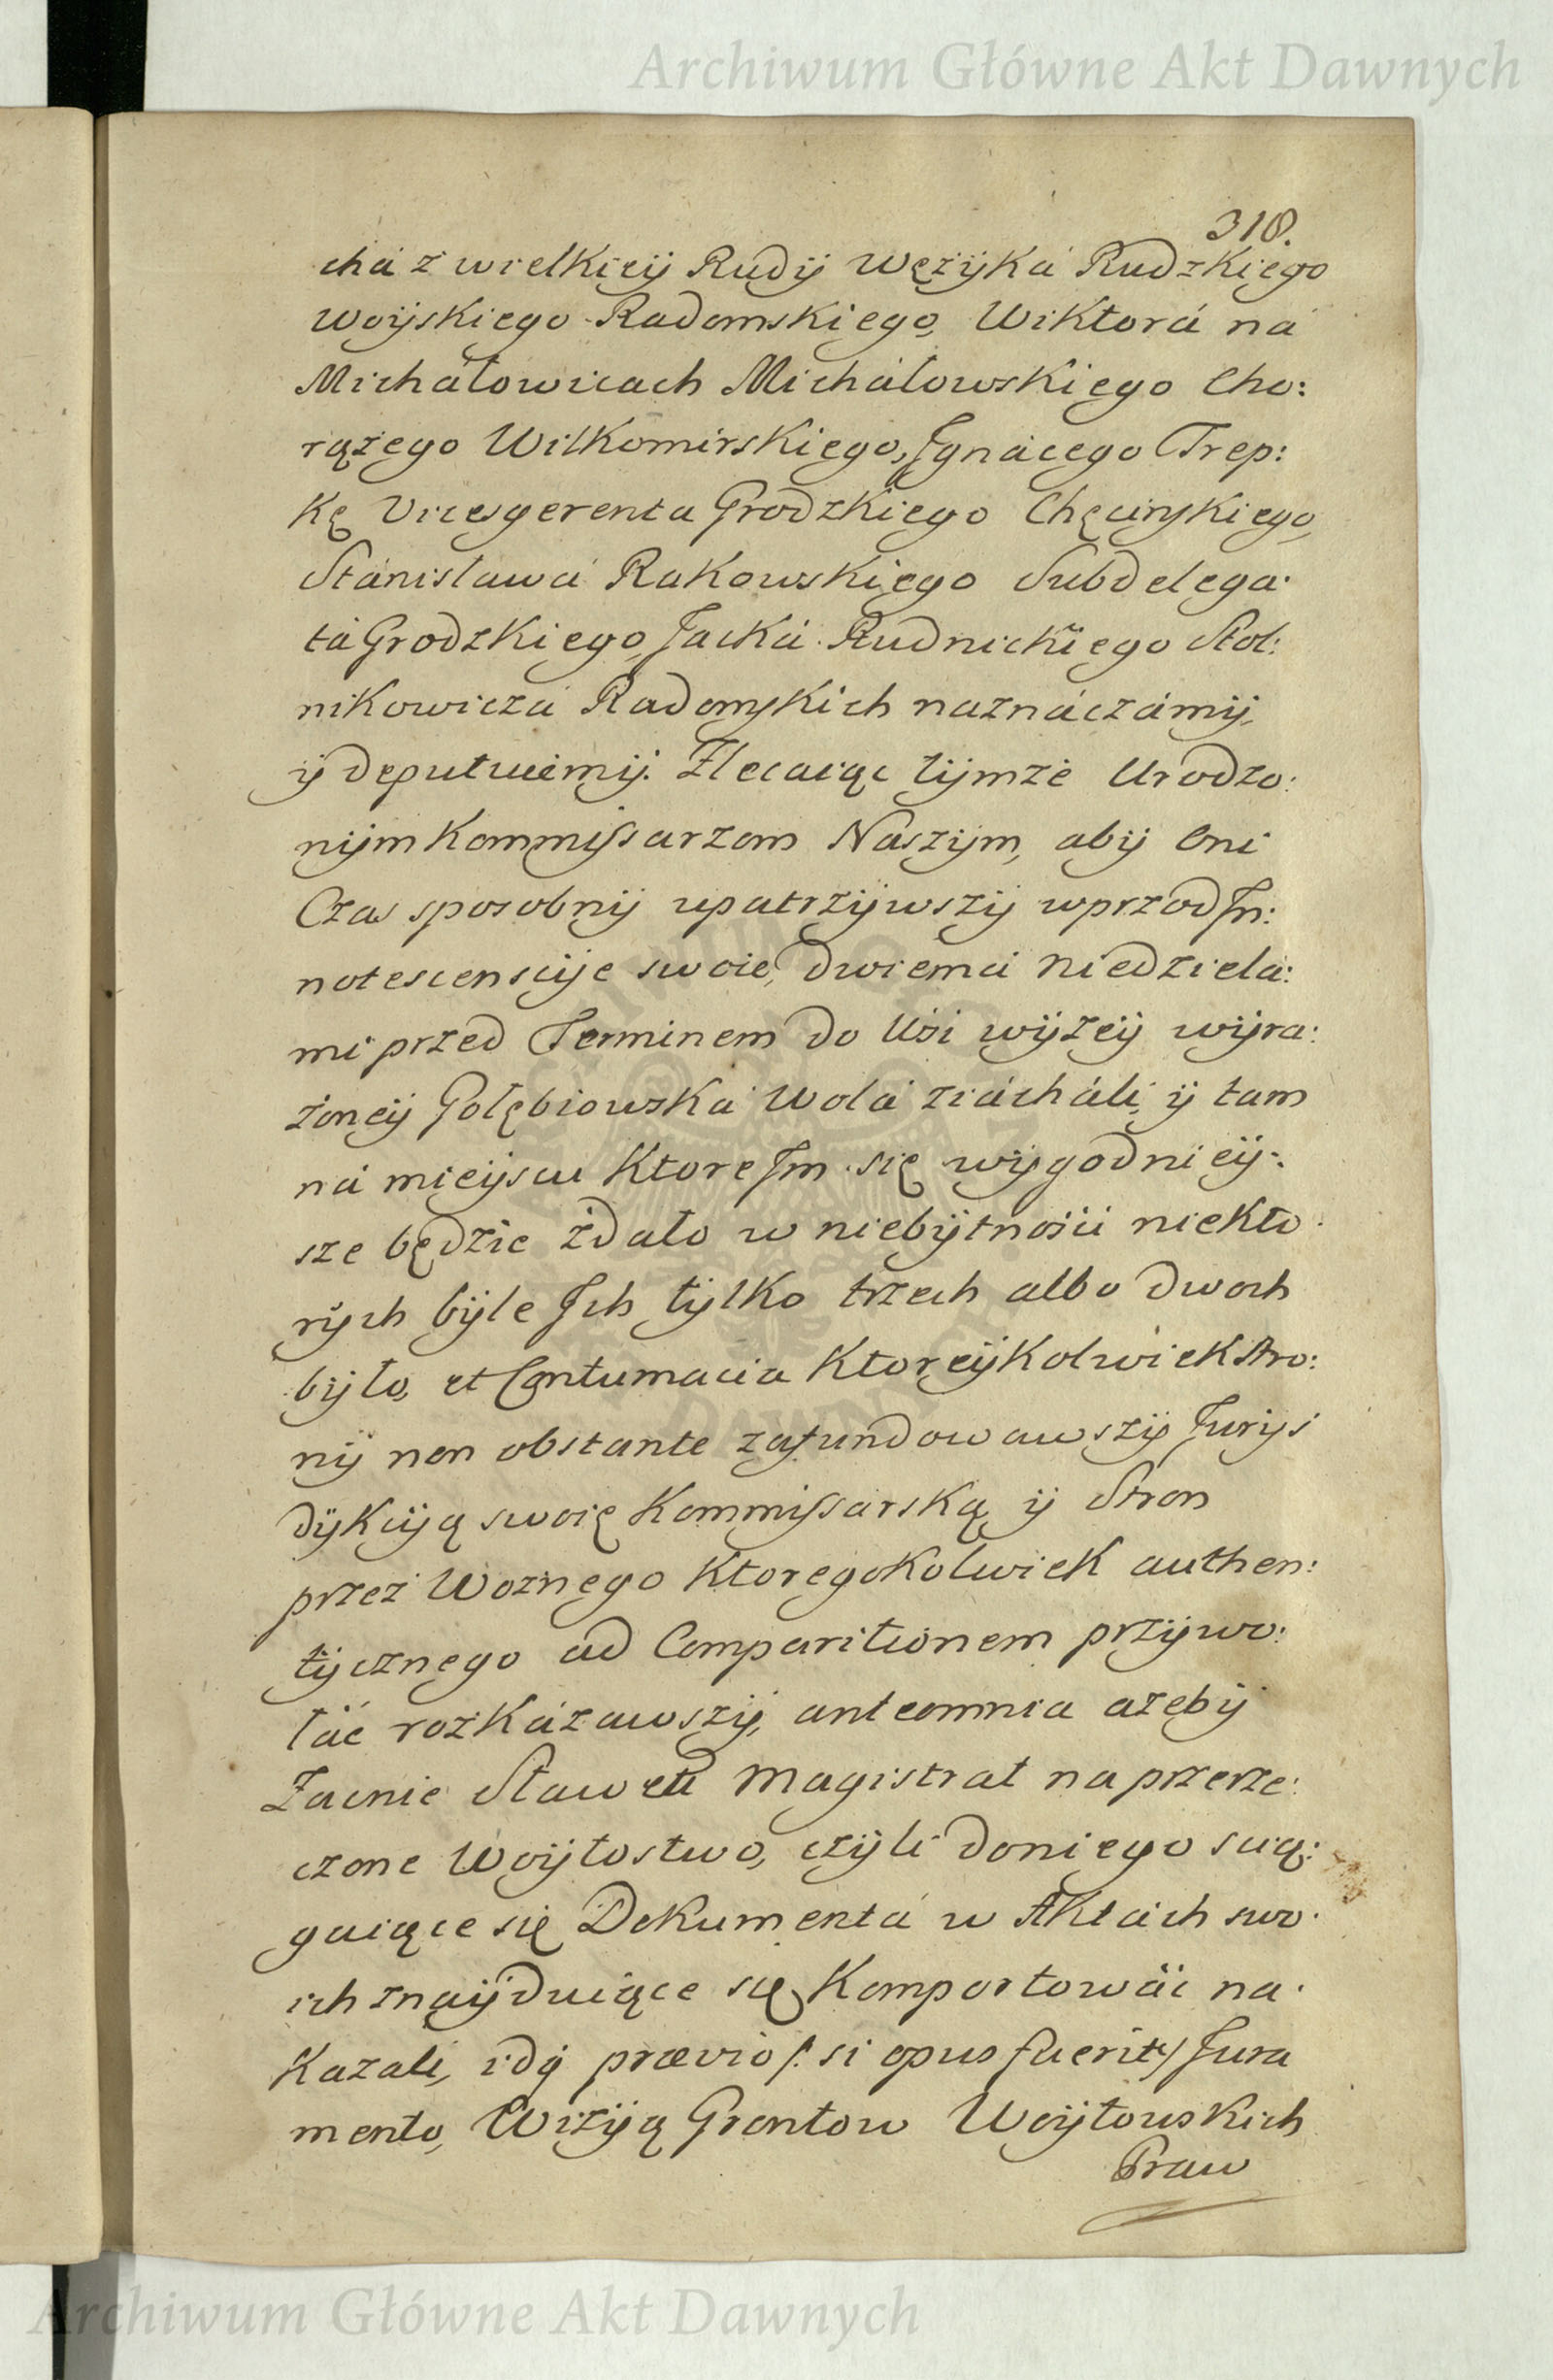 Archiwum Główne Akt Dawnych
318.
chá z wielkieÿ Rudÿ Wężÿká Rudzkiego
Woÿskiego Radomskiego, Wiktorá ná
Michałowicach Michałowskiego Cho:
rążego Wilkomirskiego, Jgnácego Trep:
kę Vicesgerenta Grodzkiego Chęcinskiego,
Stánisława Rakowskiego Subdelega:
tá Grodzkiego, Jacká Rudnickiego Stol:
nikowiczá Radomskich náznáczámÿ,
ÿ deputuiemÿ. Zlecaiąc tÿmże Urodzo:
nÿm Kommissarzom Naszÿm, abÿ Oni
Czas sposobnÿ upatrzÿwszÿ wprzod Jn:
notescencÿe swoie, dwiemá Niedzielá:
mi przed Terminem do Wsi wÿżeÿ wÿra:
żoneÿ Gołębiowská Wolá ziácháli, ÿ tam
ná mieÿscu ktore Jm się wÿgodnieÿ:
sze będzie zdało w niebÿtnosci niekto:
rÿch bÿle Jch tÿlko trzech albo dwoch
bÿło, et Contumacia ktoreÿkolwiek stro:
nÿ non obstante zafundowawszÿ Jurÿs
dÿkcÿą swoię Kommissarską, ÿ Stron
przez Woznego ktoregokolwiek authen:
tÿcznego ad Comparitionem przÿwo:
łáć rozkázawszÿ, ante omnia ażebÿ
Zacnie Sławetń Magistrat na przerze:
czone Woÿtostwo, czÿli do niego scią:
gaiące się Dokumentá w Aktách swo:
ich znaÿduiące się komportowáć na:
kazali, idą prævio /: si opus fuerit :/ Jura
mento, Wizÿą Grontow Woÿtowskich
Praw
Archiwum Główne Akt Dawnych